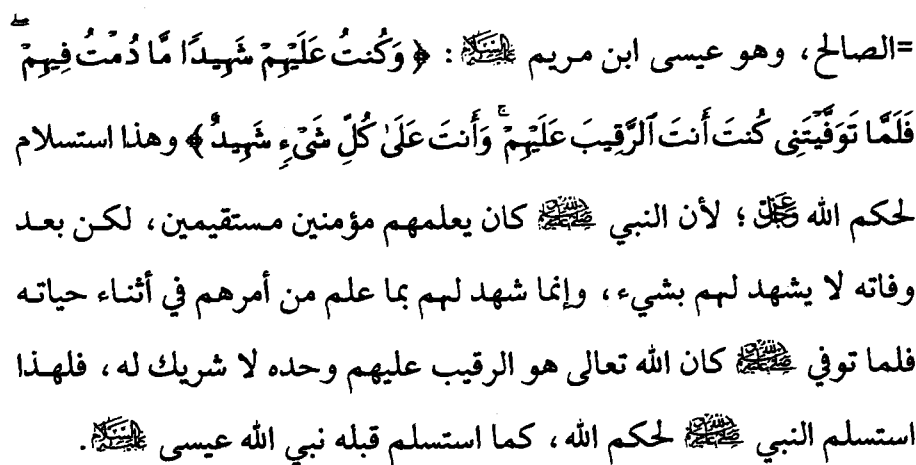 =الصالح، وهو عيسى ابن مريم عليه السلام: ﴿وَكُنتُ عَلَيْهِمْ شَهِيدًا مَّا دُمْتُ فِيهِمْ ۖ
فَلَمَّا تَوَفَّيْتَنِى كُنتَ أَنتَ ٱلرَّقِيبَ عَلَيْهِمْ ۚ وَأَنتَ عَلَىٰ كُلِّ شَىْءٍ شَهِيدٌ﴾ وهذا استسلام
لحكم الله عز وجل؛ لأن النبي ﷺ كان يعلمهم مؤمنين مستقيمين، لكن بعد
وفاته لا يشهد لهم بشيء، وإنما شهد لهم بما علم من أمرهم في أثناء حياته
فلما توفي ﷺ كان الله تعالى هو الرقيب عليهم وحده لا شريك له، فلهذا
استسلم النبي ﷺ لحكم الله، كما استسلم قبله نبي الله عيسى عليه السلام.